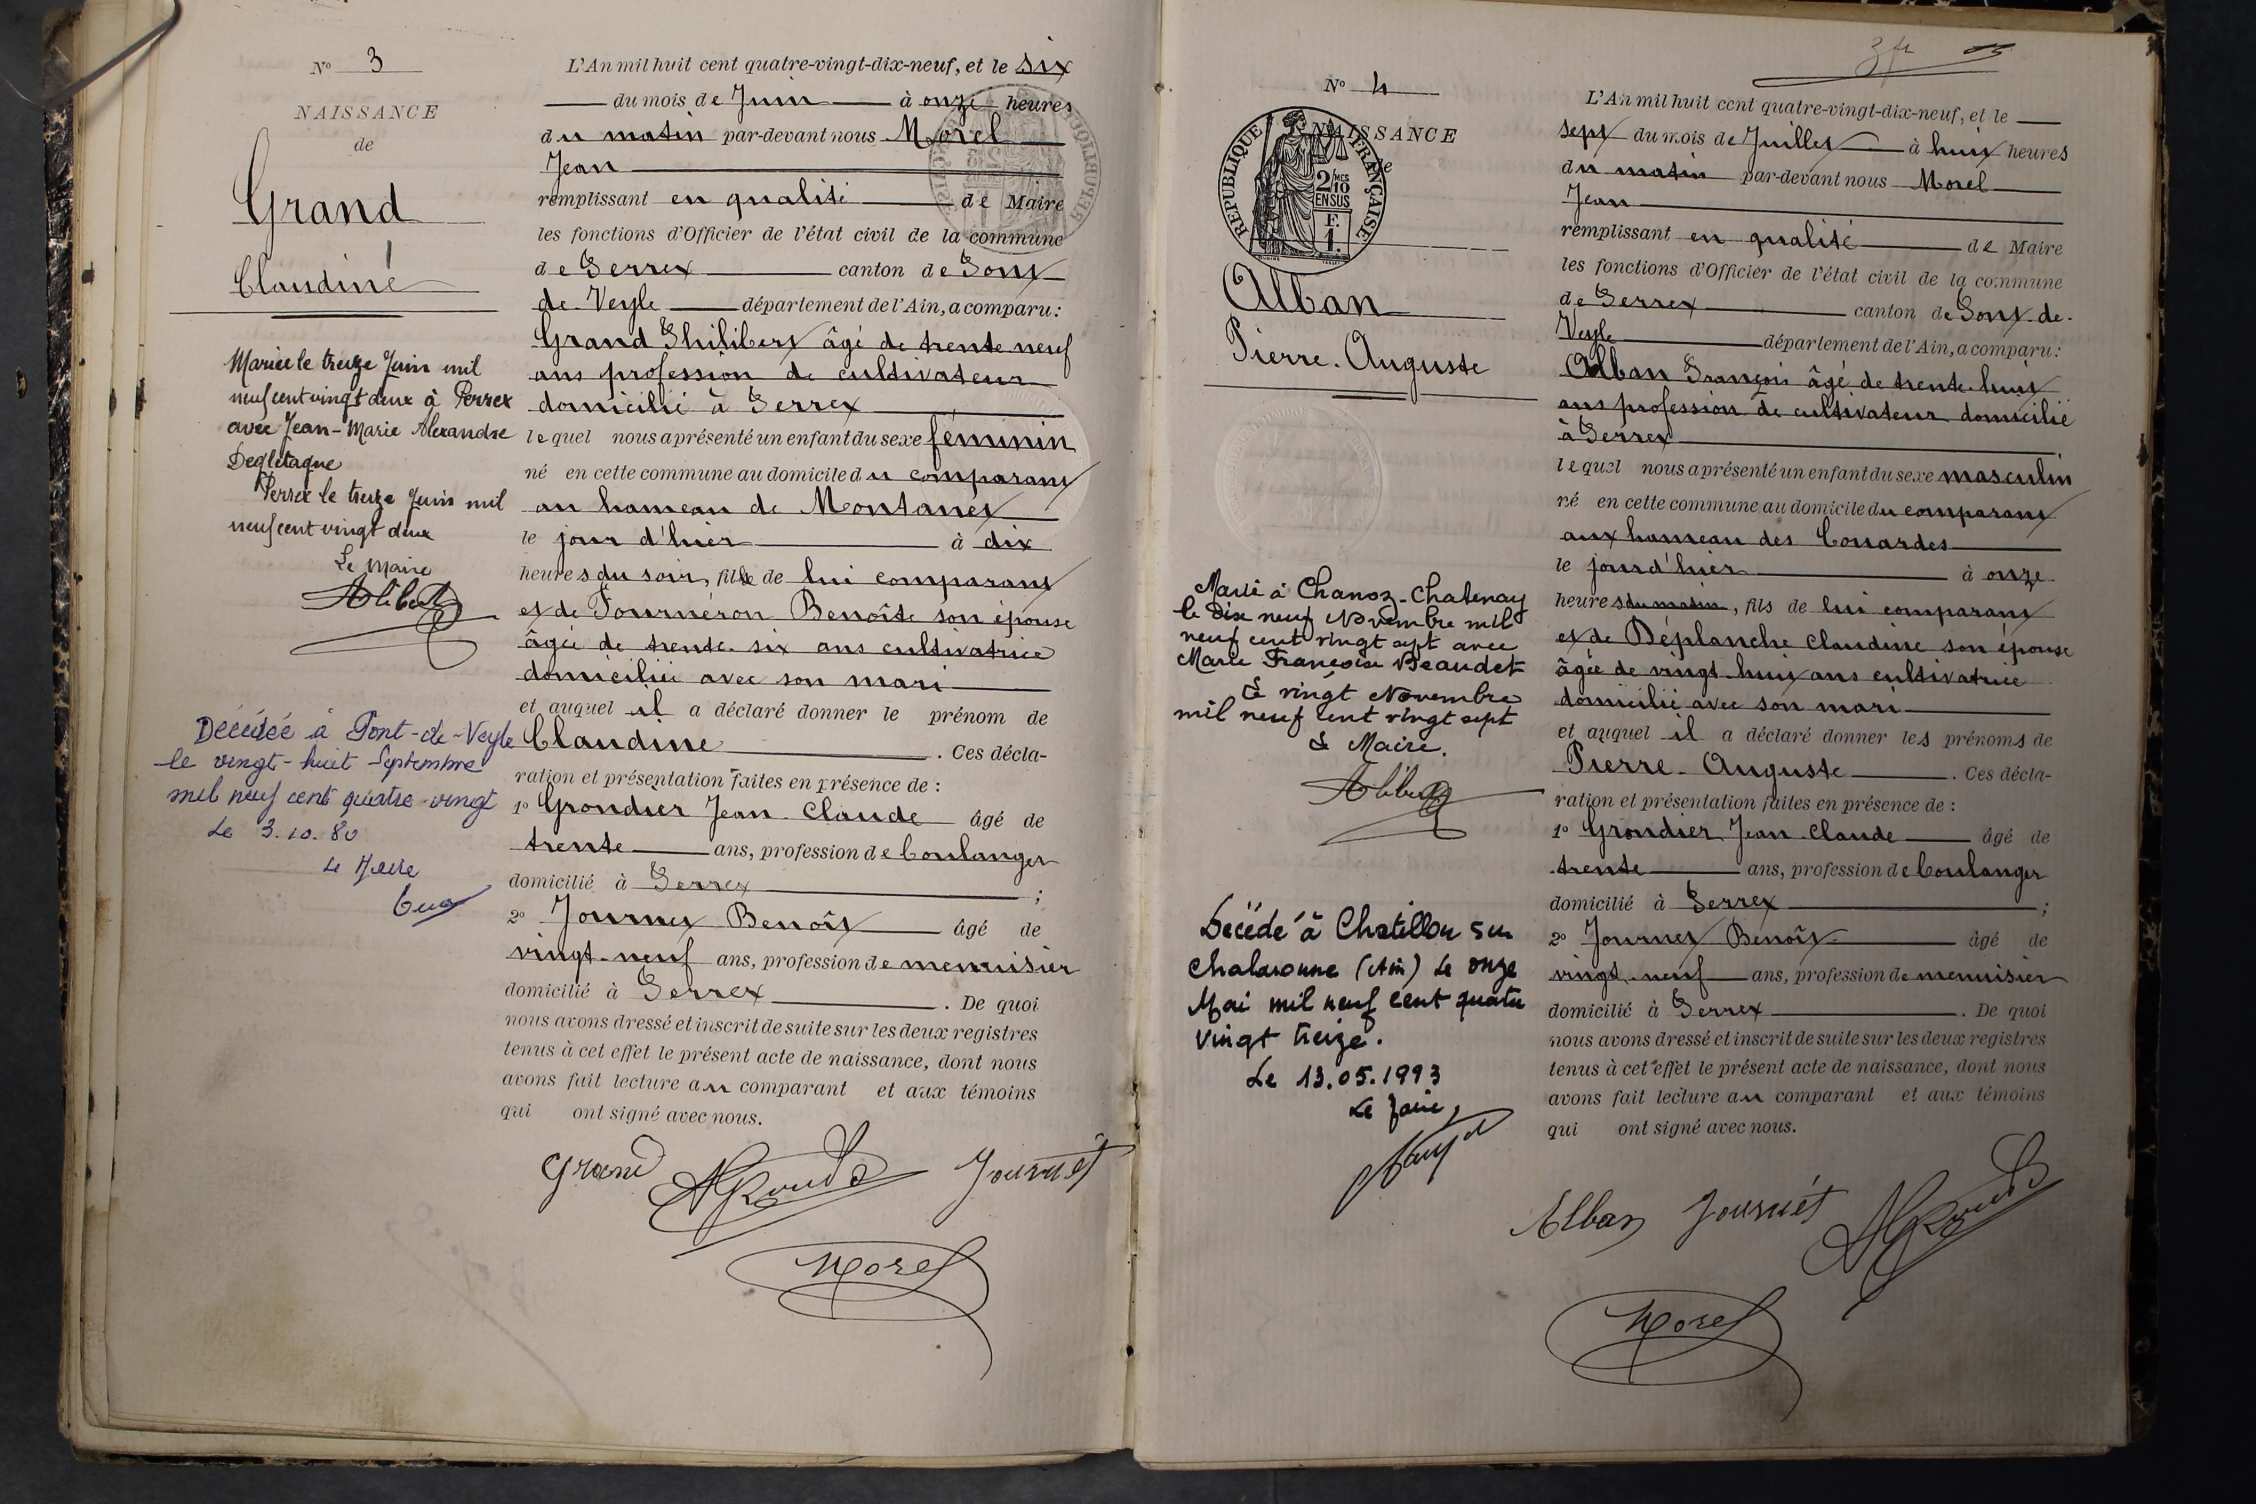 N° 3
NAISSANCE
de
Grand
Claudine
Mariée le treize Juin mil
neuf cent vingt deux à Perrex
avec Jean-Marie Alexandre
Perrex le treize Juin mil
neuf cent vingt deux
Le Maire
Décédée à Pont-de-Veyle
le vingt-huit Septembre
mil neuf cent quatre-vingt
Le 3.10.80
Le Maire
L'An mil huit cent quatre-vingt-dix-neuf, et le six
du mois de Juin à onze heures
du matin par-devant nous Morel
Jean
remplissant en qualité de Maire
les fonctions d'Officier de l'état civil de la commune
de Perrex canton de Pont
de Veyle département de l'Ain, a comparu:
Grand Philibert âgé de trente neuf
ans profession de cultivateur
domicilié à Perrex
lequel nous a présenté un enfant du sexe féminin
né en cette commune au domicile du comparant
au hameau de Montanet
le jour d'hier à dix
heures du soir, fille de lui comparant
et de Fournéron Benoîte son épouse
âgée de trente-six ans cultivatrice
domiciliée avec son mari
et auquel il a déclaré donner le prénom de
Claudine. Ces décla-
ration et présentation faites en présence de :
1° Grondier Jean-Claude âgé de
trente ans, profession de boulanger
domicilié à Perrex ;
2° Journet Benoît âgé de
vingt-neuf ans, profession de menuisier
domicilié à Perrex. De quoi
nous avons dressé et inscrit de suite sur les deux registres
tenus à cet effet le présent acte de naissance, dont nous
avons fait lecture au comparant et aux témoins
qui ont signé avec nous.
Grand Journet
Morel
3 fr 05
N° 4
NAISSANCE
de
REPUBLIQUE FRANÇAISE
2/10 MES
EN SUS
F.
1.
Alban
Pierre-Auguste
Marié à Chanoz-Chatenay
le dix neuf Novembre mil
neuf cent vingt sept avec
Marie Françoise Beaudet
Le vingt Novembre
mil neuf cent vingt sept
Le Maire.
Décédé à Chatillon sur
Chalaronne (Ain) le onze
Mai mil neuf cent quatre
vingt treize.
Le 13.05.1993
Le Maire,
L'An mil huit cent quatre-vingt-dix-neuf, et le
sept du mois de Juillet à huit heures
du matin par-devant nous Morel
Jean
remplissant en qualité de Maire
les fonctions d'Officier de l'état civil de la commune
de Perrex canton de Pont-de-
Veyle département de l'Ain, a comparu:
Alban François âgé de trente-huit
ans profession de cultivateur domicilié
à Perrex
lequel nous a présenté un enfant du sexe masculin
né en cette commune au domicile du comparant
aux hameau des Couardes
le jour d'hier à onze
heures du matin, fils de lui comparant
et de Déplanche Claudine son épouse
âgée de vingt-huit ans cultivatrice
domiciliée avec son mari
et auquel il a déclaré donner les prénoms de
Pierre-Auguste. Ces décla-
ration et présentation faites en présence de :
1° Grondier Jean-Claude âgé de
trente ans, profession de boulanger
domicilié à Perrex ;
2° Journet Benoît âgé de
vingt-neuf ans, profession de menuisier
domicilié à Perrex. De quoi
nous avons dressé et inscrit de suite sur les deux registres
tenus à cet effet le présent acte de naissance, dont nous
avons fait lecture au comparant et aux témoins
qui ont signé avec nous.
Alban Journet
Morel